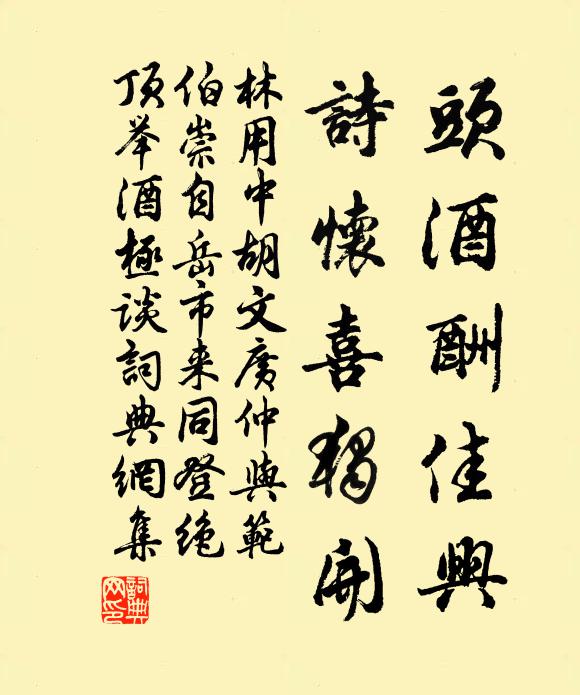 頭酒酬佳興
詩懷喜獨開
林用中胡文廣仲與範
伯崇自岳市来同登绝
頂举酒極談詞典網集
詞典網印